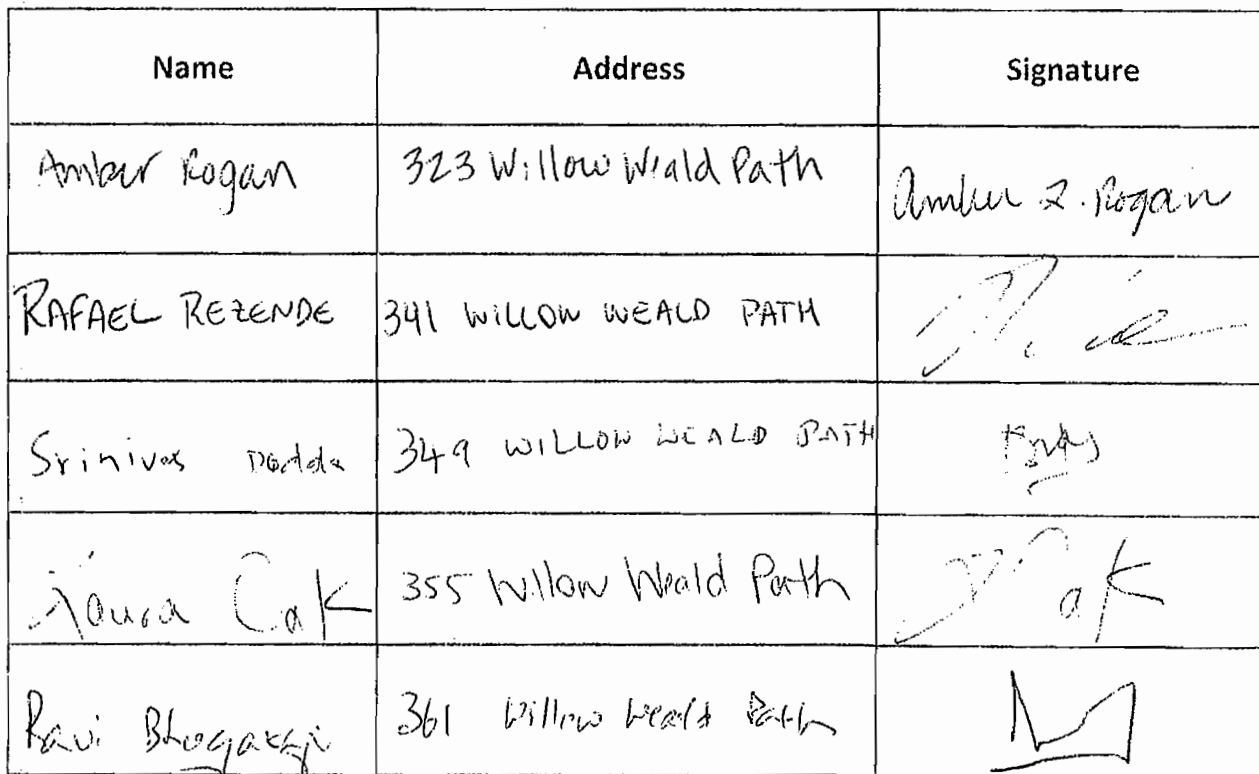 Name Address Signature
Amber Rogan 323 Willow Weald Path Amber Z. Rogan
RAFAEL REZENDE 341 WILLOW WEALD PATH
Srinivas 349 WILLOW WEALD PATH
Laura Cak 355 Willow Weald Path Cak
Ravi 361 Willow Weald Path